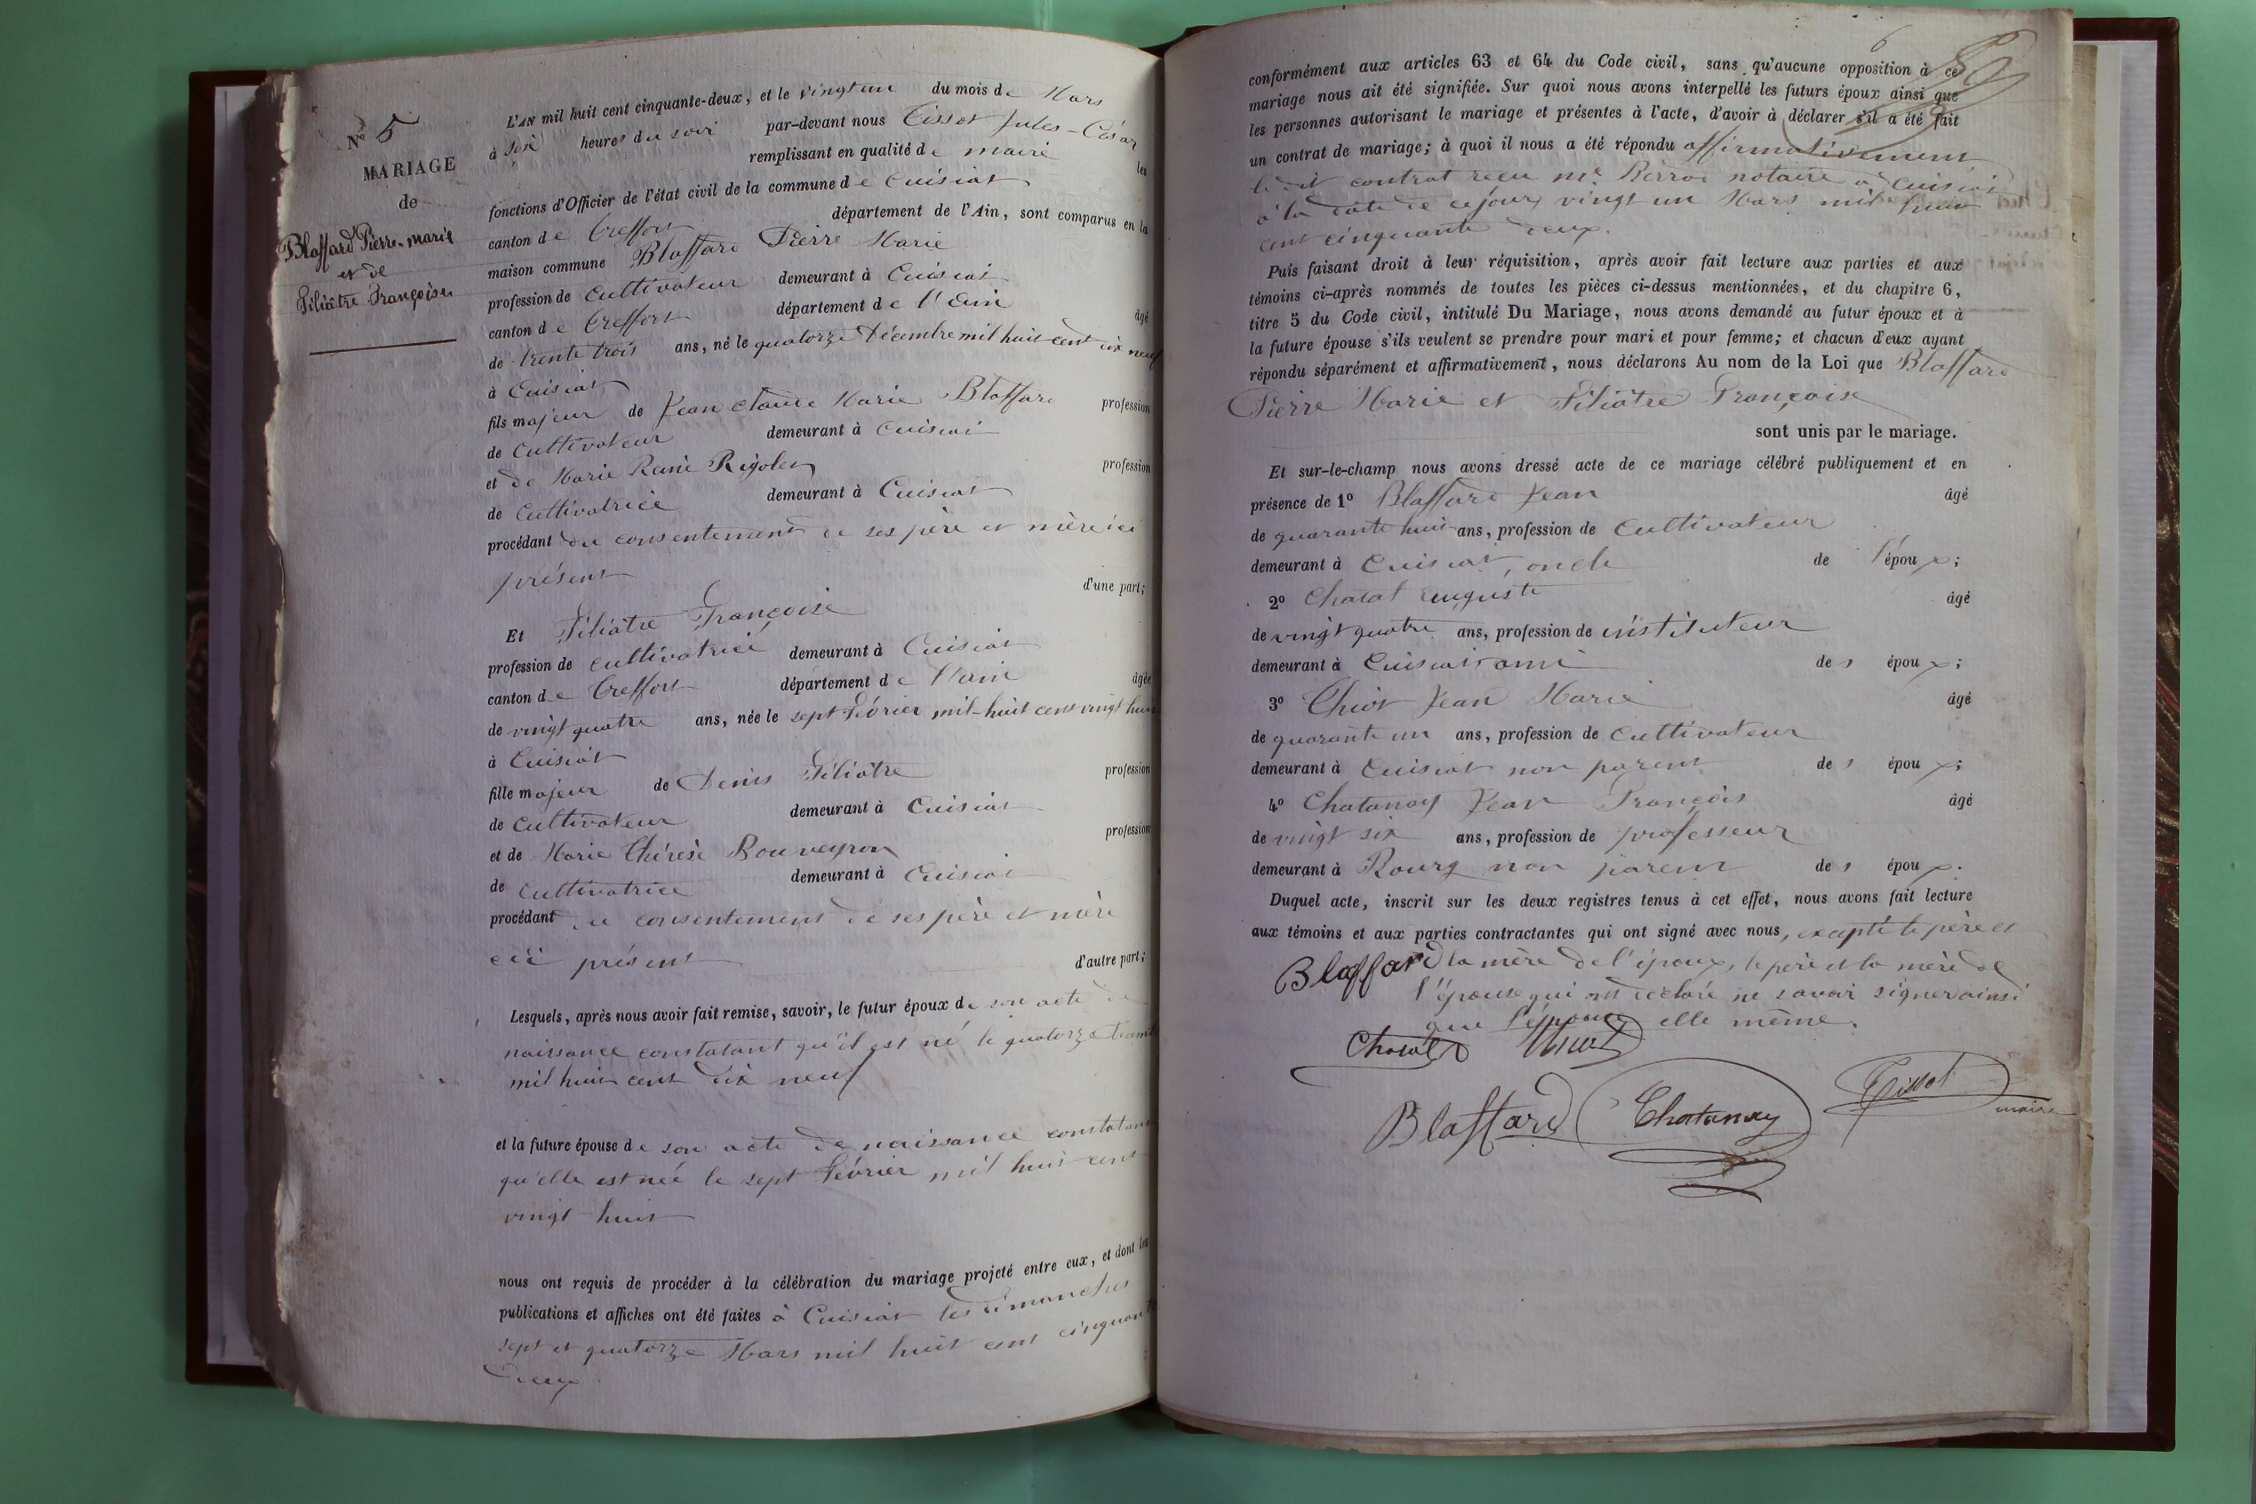 N° 5
MARIAGE
de
Blaffard Pierre-marie
et de
Féliâtre Françoise
L'AN mil huit cent cinquante-deux, et le vingt un du mois de Mars
à six heures du soir par-devant nous Tissot Jules-César
remplissant en qualité de maire les
fonctions d'Officier de l'état civil de la commune de Cuisiat
canton de Treffort département de l'Ain, sont comparus en la
maison commune Blaffard Pierre Marie
profession de cultivateur demeurant à Cuisiat
canton de Treffort département de l'Ain âgé
de trente trois ans, né le quatorze Décembre mil huit cent dix neuf
à Cuisiat
fils majeur de Jean Claude Marie Blaffard profession
de cultivateur demeurant à Cuisiat
et de Marie Reine profession
de cultivatrice demeurant à Cuisiat
procédant du consentement de ses père et mère ici
présent d'une part;
Et Féliâtre Françoise
profession de cultivatrice demeurant à Cuisiat
canton de Treffort département de l'ain âgée
de vingt quatre ans, née le sept Février mil-huit cent vingt huit
à Cuisiat
fille majeur de Denis Féliâtre profession
de cultivateur demeurant à Cuisiat
et de Marie Thérèse Bouveyron profession
de cultivatrice demeurant à Cuisiat
procédant du consentement de ses père et mère
ici présent d'autre part;
Lesquels, après nous avoir fait remise, savoir, le futur époux de son acte de
naissance constatant qu'il est né le quatorze
mil huit cent dix neuf
et la future épouse de son acte de naissance constatant
qu'elle est née le sept Février mil huit cent
vingt huit
nous ont requis de procéder à la célébration du mariage projeté entre eux, et dont les
publications et affiches ont été faites à Cuisiat les dimanches
sept et quatorze Mars mil huit cent cinquante
deux
6
conformément aux articles 63 et 64 du Code civil, sans qu'aucune opposition à ce
mariage nous ait été signifiée. Sur quoi nous avons interpellé les futurs époux ainsi que
les personnes autorisant le mariage et présentes à l'acte, d'avoir à déclarer s'il a été fait
un contrat de mariage; à quoi il nous a été répondu affirmativement
le dit contrat reçu Me notaire à Cuisiat
à la date de ce jour, vingt un Mars mil huit
cent cinquante deux.
Puis faisant droit à leur réquisition, après avoir fait lecture aux parties et aux
témoins ci-après nommés de toutes les pièces ci-dessus mentionnées, et du chapitre 6,
titre 5 du Code civil, intitulé Du Mariage, nous avons demandé au futur époux et à
la future épouse s'ils veulent se prendre pour mari et pour femme; et chacun d'eux ayant
répondu séparément et affirmativement, nous déclarons Au nom de la Loi que Blaffard
Pierre Marie et Féliâtre Françoise
sont unis par le mariage.
Et sur-le-champ nous avons dressé acte de ce mariage célébré publiquement et en
présence de 1° Blaffard Jean âgé
de quarante huit ans, profession de cultivateur
demeurant à Cuisiat, oncle de l'époux;
2° Chatal Auguste âgé
de vingt quatre ans, profession de instituteur
demeurant à Cuisiat ami des époux;
3° Thiot Jean Marie âgé
de quarante un ans, profession de cultivateur
demeurant à Cuisiat non parent des époux;
4° Chatanay Jean François âgé
de vingt six ans, profession de professeur
demeurant à Bourg non parent des époux.
Duquel acte, inscrit sur les deux registres tenus à cet effet, nous avons fait lecture
aux témoins et aux parties contractantes qui ont signé avec nous, excepté le père et
Blaffard la mère de l'époux, le père et la mère de
l'épouse qui ont déclaré ne savoir signer ainsi
que l'épouse elle même.
Chatal Thiot
Blaffard Chatanay Tissot
maire